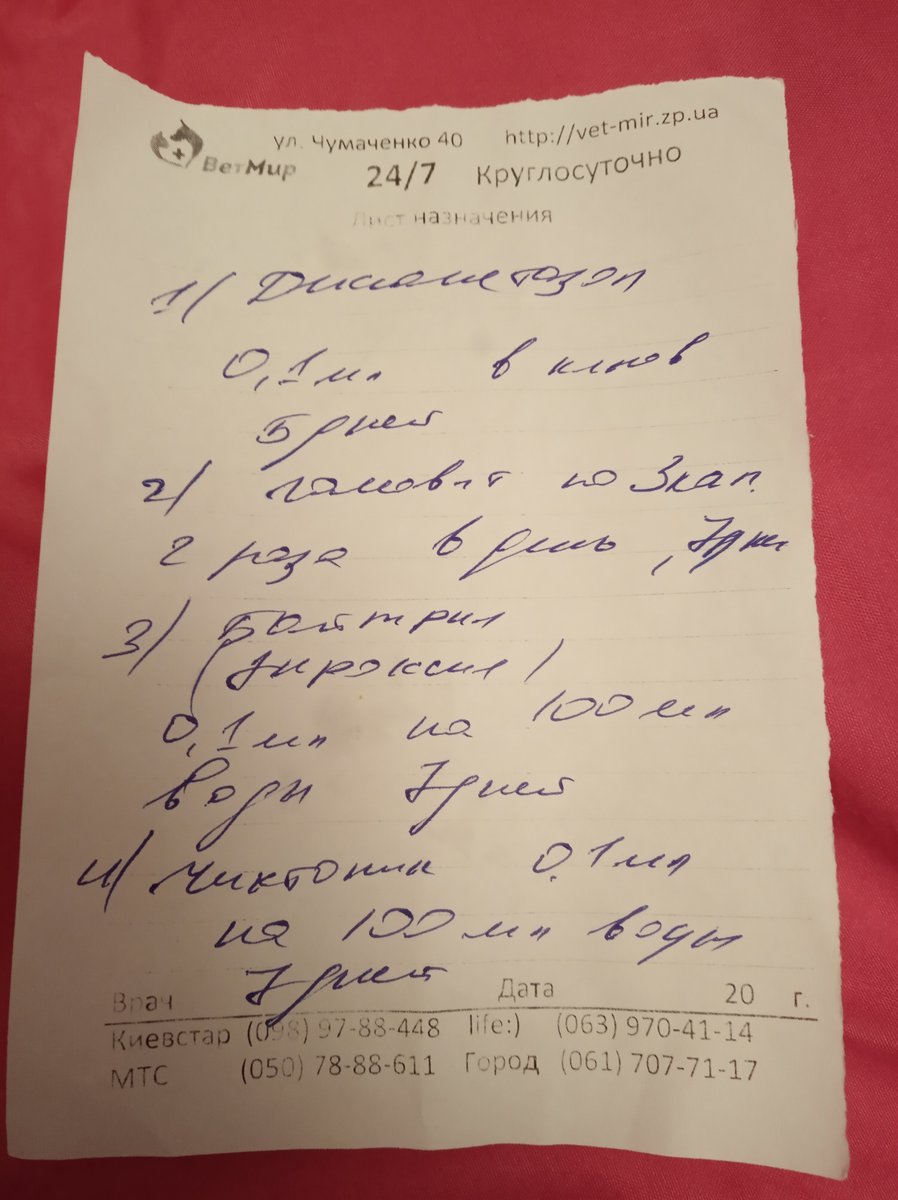 ул. Чумаченко 40 http://vet-mir.zp.ua
ВетМир 24/7 Круглосуточно
Лист назначения
1/
0,1 мл в клюв
5 дней
2/ гамовит по 3 кап.
2 раза в день, 7 дней
3/ Байтрил
(Энроксил)
0,1 мл на 100 мл
воды 7 дней
4/ Чиктоник 0,1 мл
на 100 мл воды
7 дней
Врач Дата 20 г.
Киевстар (098) 97-88-448 life:) (063) 970-41-14
МТС (050) 78-88-611 Город (061) 707-71-17